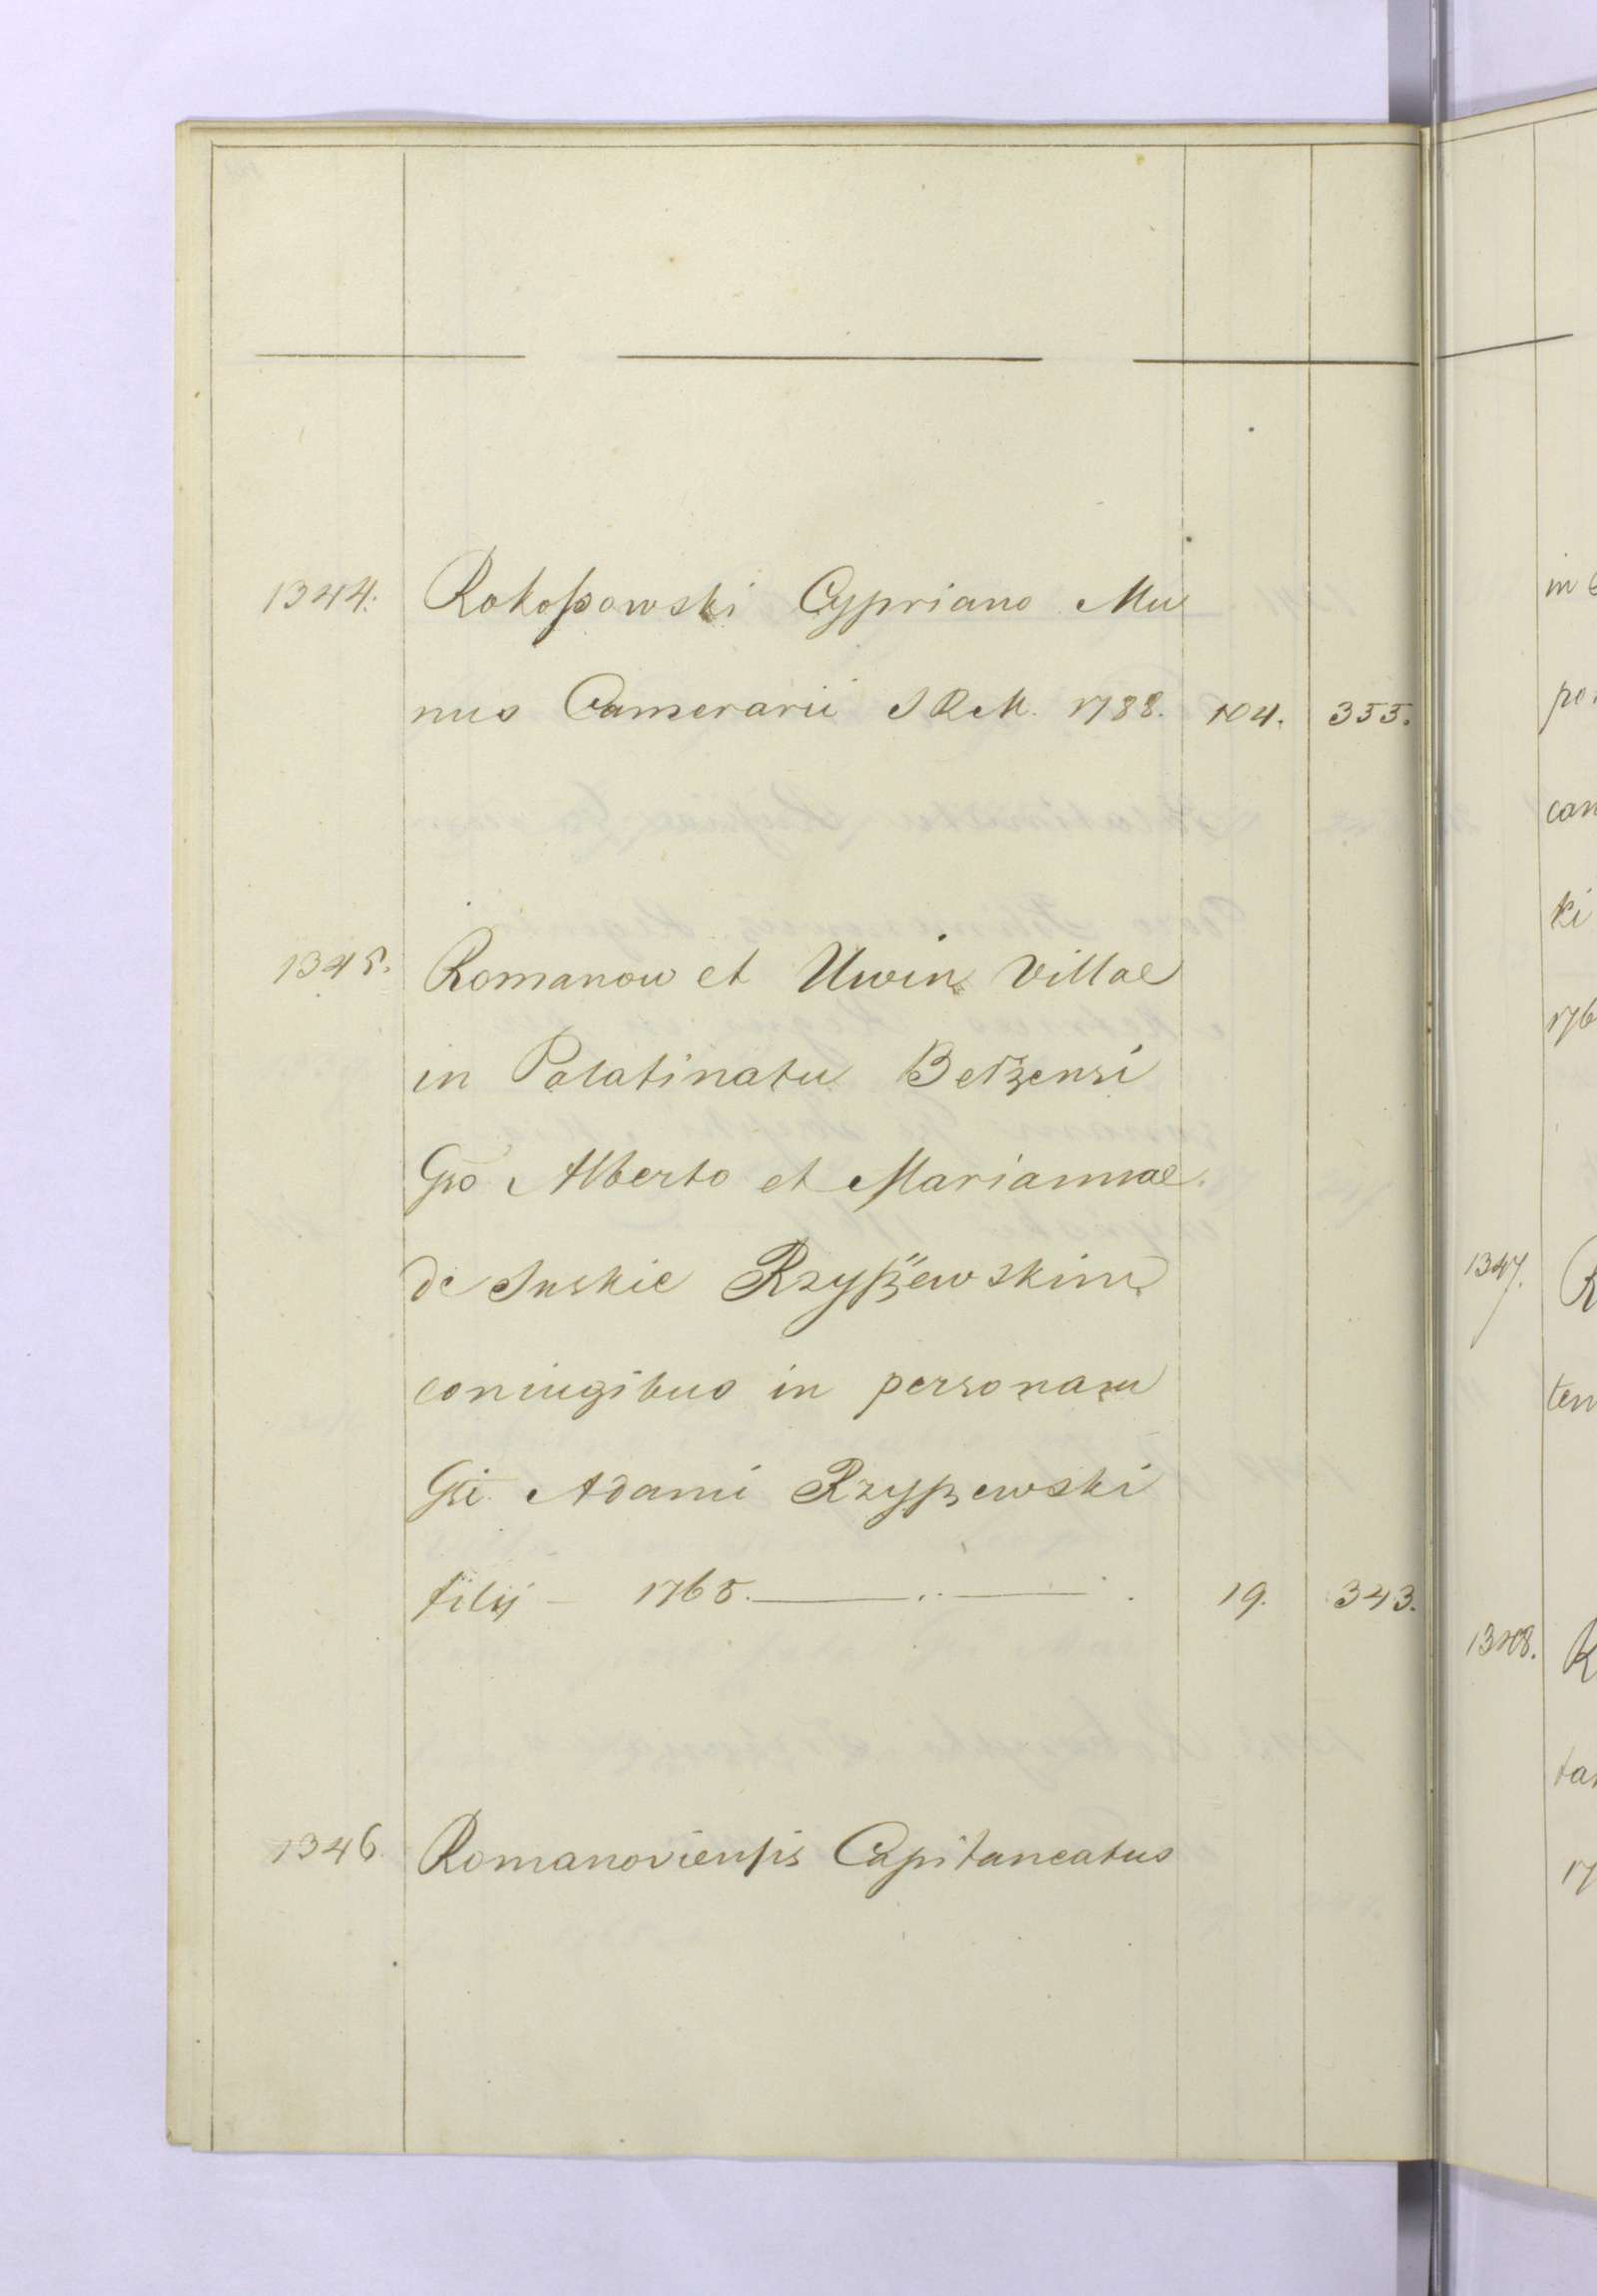 1344. Rokoſsowski Cypriano Mu
nus Camerarii S R M. 1788. 104. 353.
1345. Romanow et Uwin Villae
in Palatinatu Betzensi
Gso Alberto et Mariannae
de Suskie Rzyſzewskim
coniugibus in personam
Gsi Adami Rzyszewski
filij - 1765. 19. 343.
1346. Romanovienſis Capitaneatus
1347.
1348.